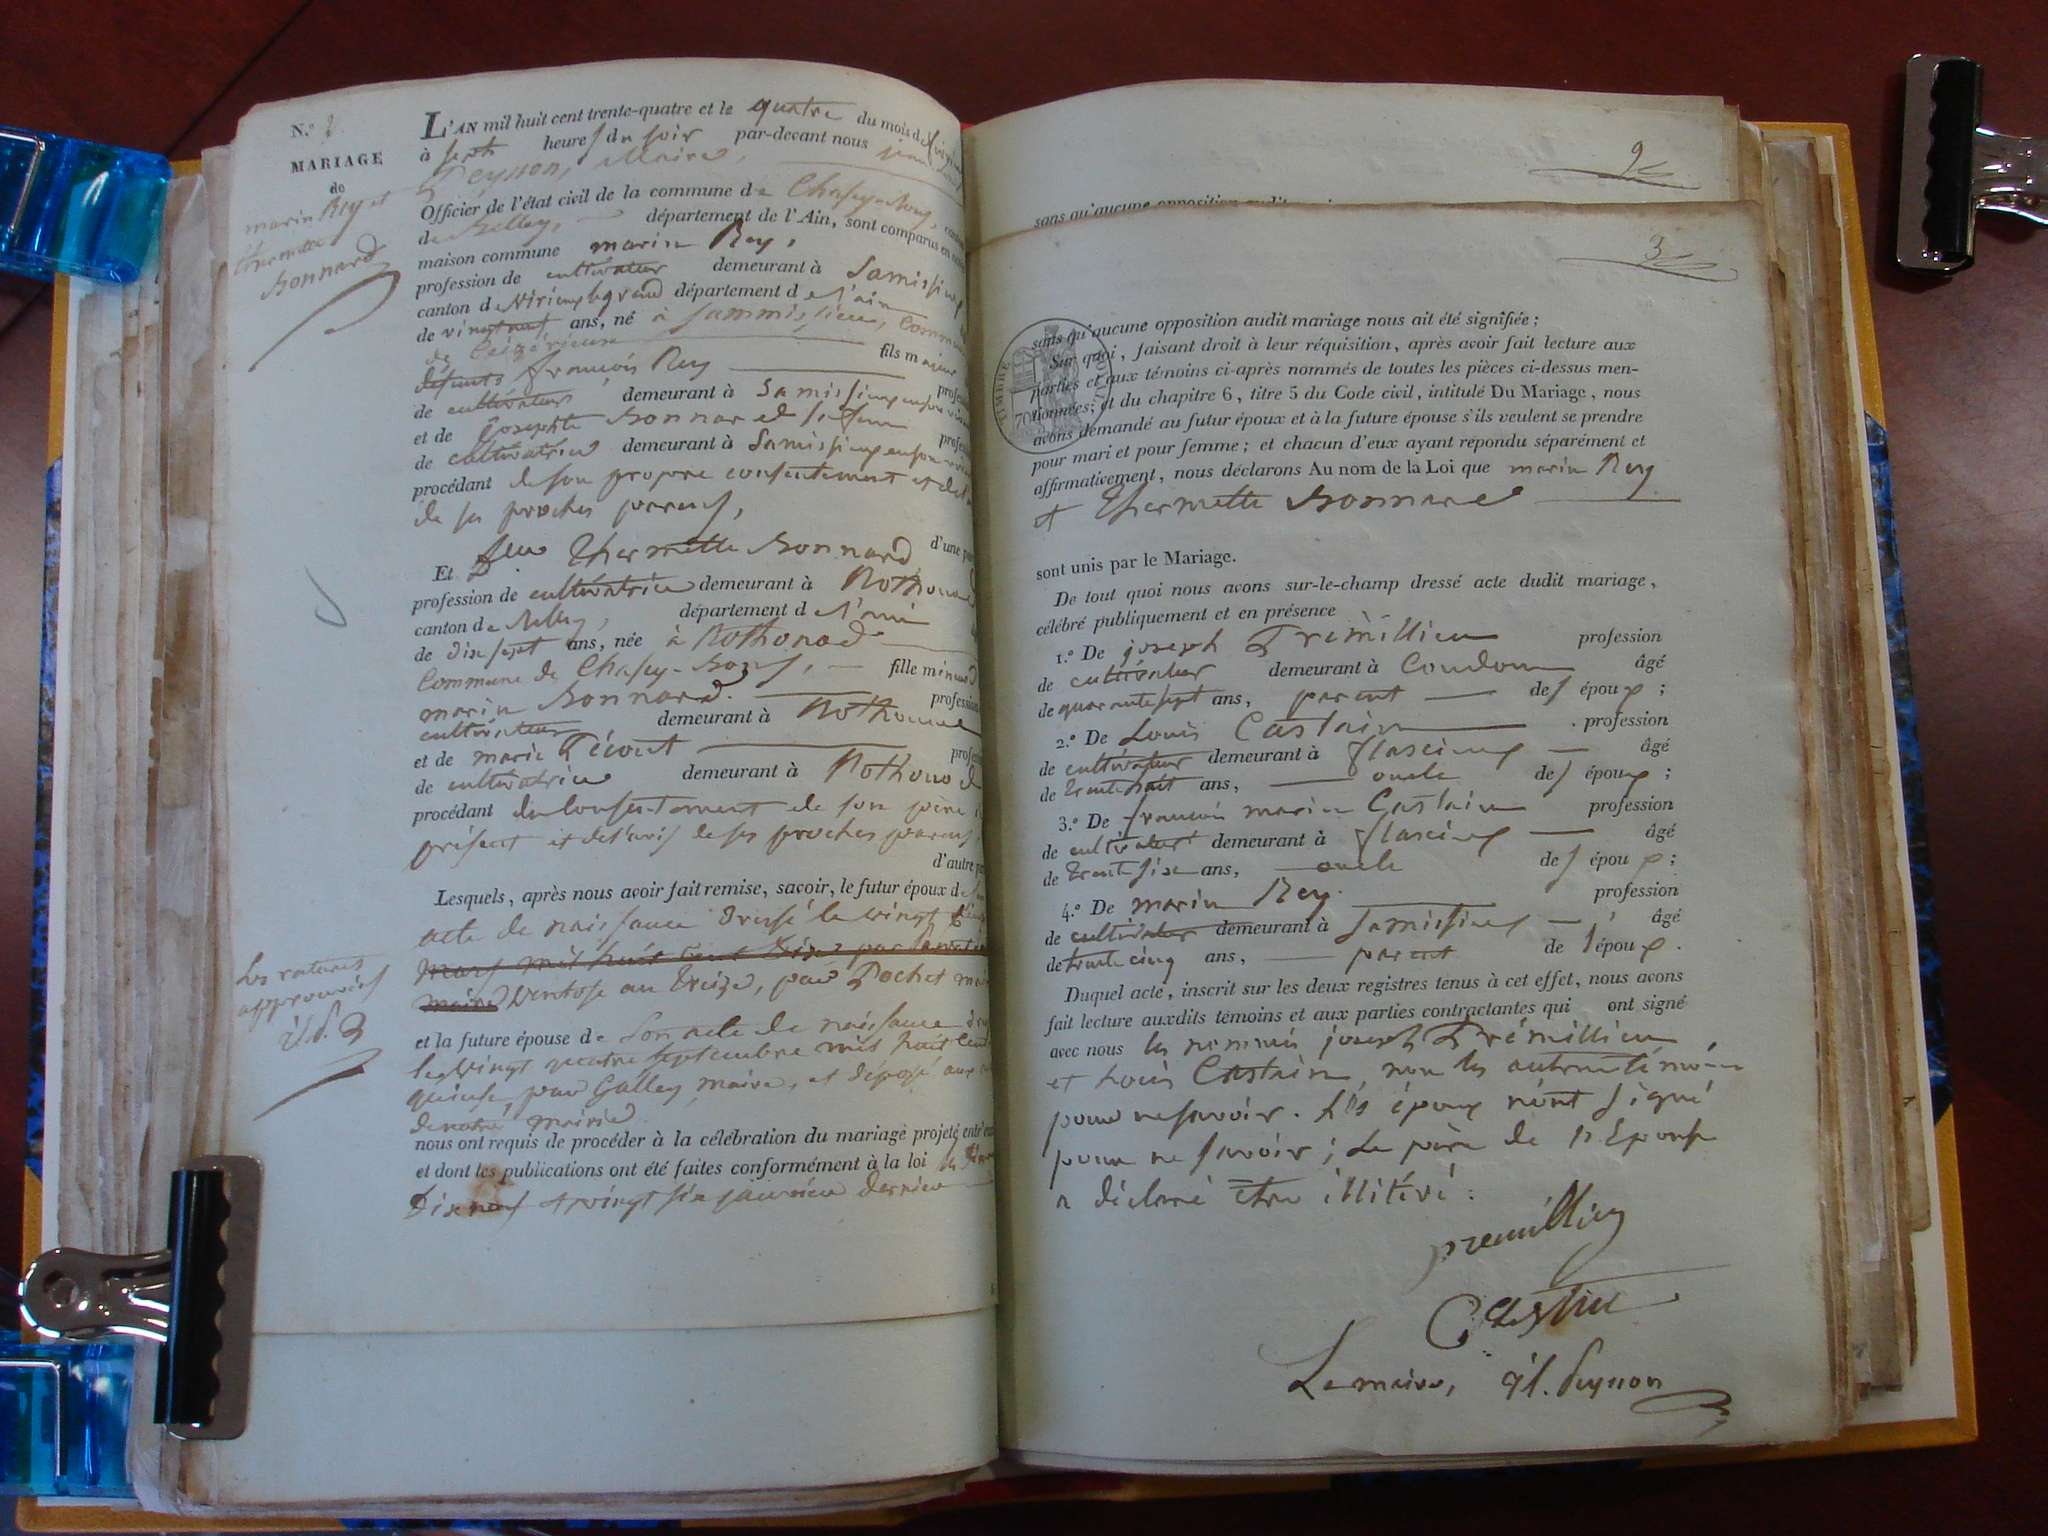 N.º 2
MARIAGE
de
marin Rey et
thermette
Bonnard
L'AN mil huit cent trente-quatre et le quatre du mois de
à sept heures du soir par-devant nous jean
Peysson, Maire,
Officier de l'état civil de la commune de Chasey-Bons,
de Belley, département de l'Ain, sont comparus en notre
maison commune marin Rey,
profession de cultivateur demeurant à Samissieux
canton de Virieux le grand département de l'ain
de vingt neuf ans, né à Sammissieu, Commune
de Ceizérieux fils majeur
défunts françois Rey
de cultivateur demeurant à Samissieux en son vivant
et de Josephte Bonnard
de cultivatrice demeurant à Samissieux en son vivant
procédant de son propre consentement et de l'avis
de ses proches parens,
d'une part
Et thermette Bonnard
profession de cultivatrice demeurant à Rothonod
canton de Belley, département de l'ain
de dix sept ans, née à Rothonod
Commune de Chasey-Bons, fille mineure
marin Bonnard profession
cultivateur demeurant à Rothonod
et de marie Pécout
de cultivatrice demeurant à Rothonod
procédant du Consentement de son père
présent et de l'avis de ses proches parens
d'autre part
Lesquels, après nous avoir fait remise, savoir, le futur époux de son
acte de naissance dressé le vingt
mars mil huit cent treize par
maire Ventose an treize, par Pochet
Les ratures
approuvées
J. P.
et la future épouse de Son acte de naissance
le vingt quatre septembre mil huit cent
quinse, par Gallay, maire, et déposé aux
de notre mairie
nous ont requis de procéder à la célébration du mariage projeté entr'eux
et dont les publications ont été faites conformément à la loi les
Dix neuf et vingt six janvier dernier
2
sans qu'aucune opposition audit
3
sans qu'aucune opposition audit mariage nous ait été signifiée ;
Sur quoi, faisant droit à leur réquisition, après avoir fait lecture aux
parties et aux témoins ci-après nommés de toutes les pièces ci-dessus men-
tionnées; et du chapitre 6, titre 5 du Code civil, intitulé Du Mariage, nous
avons demandé au futur époux et à la future épouse s'ils veulent se prendre
pour mari et pour femme ; et chacun d'eux ayant répondu séparément et
affirmativement, nous déclarons Au nom de la Loi que marin Rey
et thermette Bonnard
TIMBRE
70
sont unis par le Mariage.
De tout quoi nous avons sur-le-champ dressé acte dudit mariage,
célébré publiquement et en présence
1.º De joseph Prémillieu profession
de cultivateur demeurant à Coudon âgé
de quarante sept ans, parent des époux ;
2.º De Louis Castain profession
de cultivateur demeurant à flascieux âgé
de trente huit ans, oncle des époux ;
3.º De françois marin Castain profession
de cultivateur demeurant à flascieux âgé
de trente six ans, oncle des époux ;
4.º De marin Rey profession
de cultivateur demeurant à Samissieux âgé
de trente cinq ans, parent de l'époux .
Duquel acte, inscrit sur les deux registres tenus à cet effet, nous avons
fait lecture auxdits témoins et aux parties contractantes qui ont signé
avec nous les nommés joseph Prémillieu
et Louis Castain, non les autres témoins
pour ne savoir. Les époux n'ont signé
pour ne savoir ; Le père de l'Epouse
a déclaré être illitéré :
premillieu
Castin
Le maire, J. Peysson